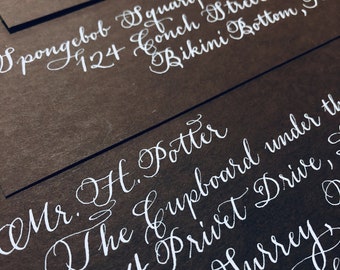 Spongebob
124 Conch Street
Bikini Bottom,
Mr. H. Potter
The Cupboard under the
4 Privet Drive,
Surrey,